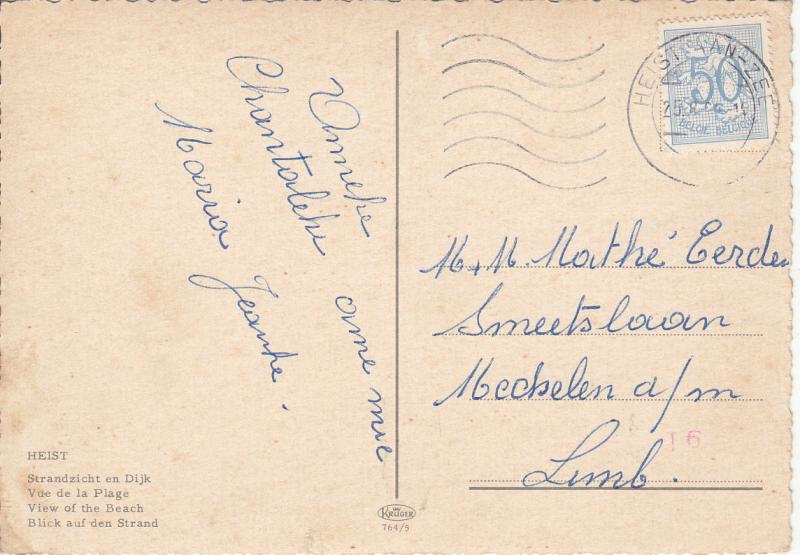 Anneke
Chantaleke ome mie
Maria Jeanke.
HEIST
Strandzicht en Dijk
Vue de la Plage
View of the Beach
Blick auf den Strand
KRÜGER
764/5
HEIST-AAN-ZEE
50
BELGIE-BELGIQUE
M. M. Mathé Eerde
Smeetslaan
Mechelen a/m
Limb.
16